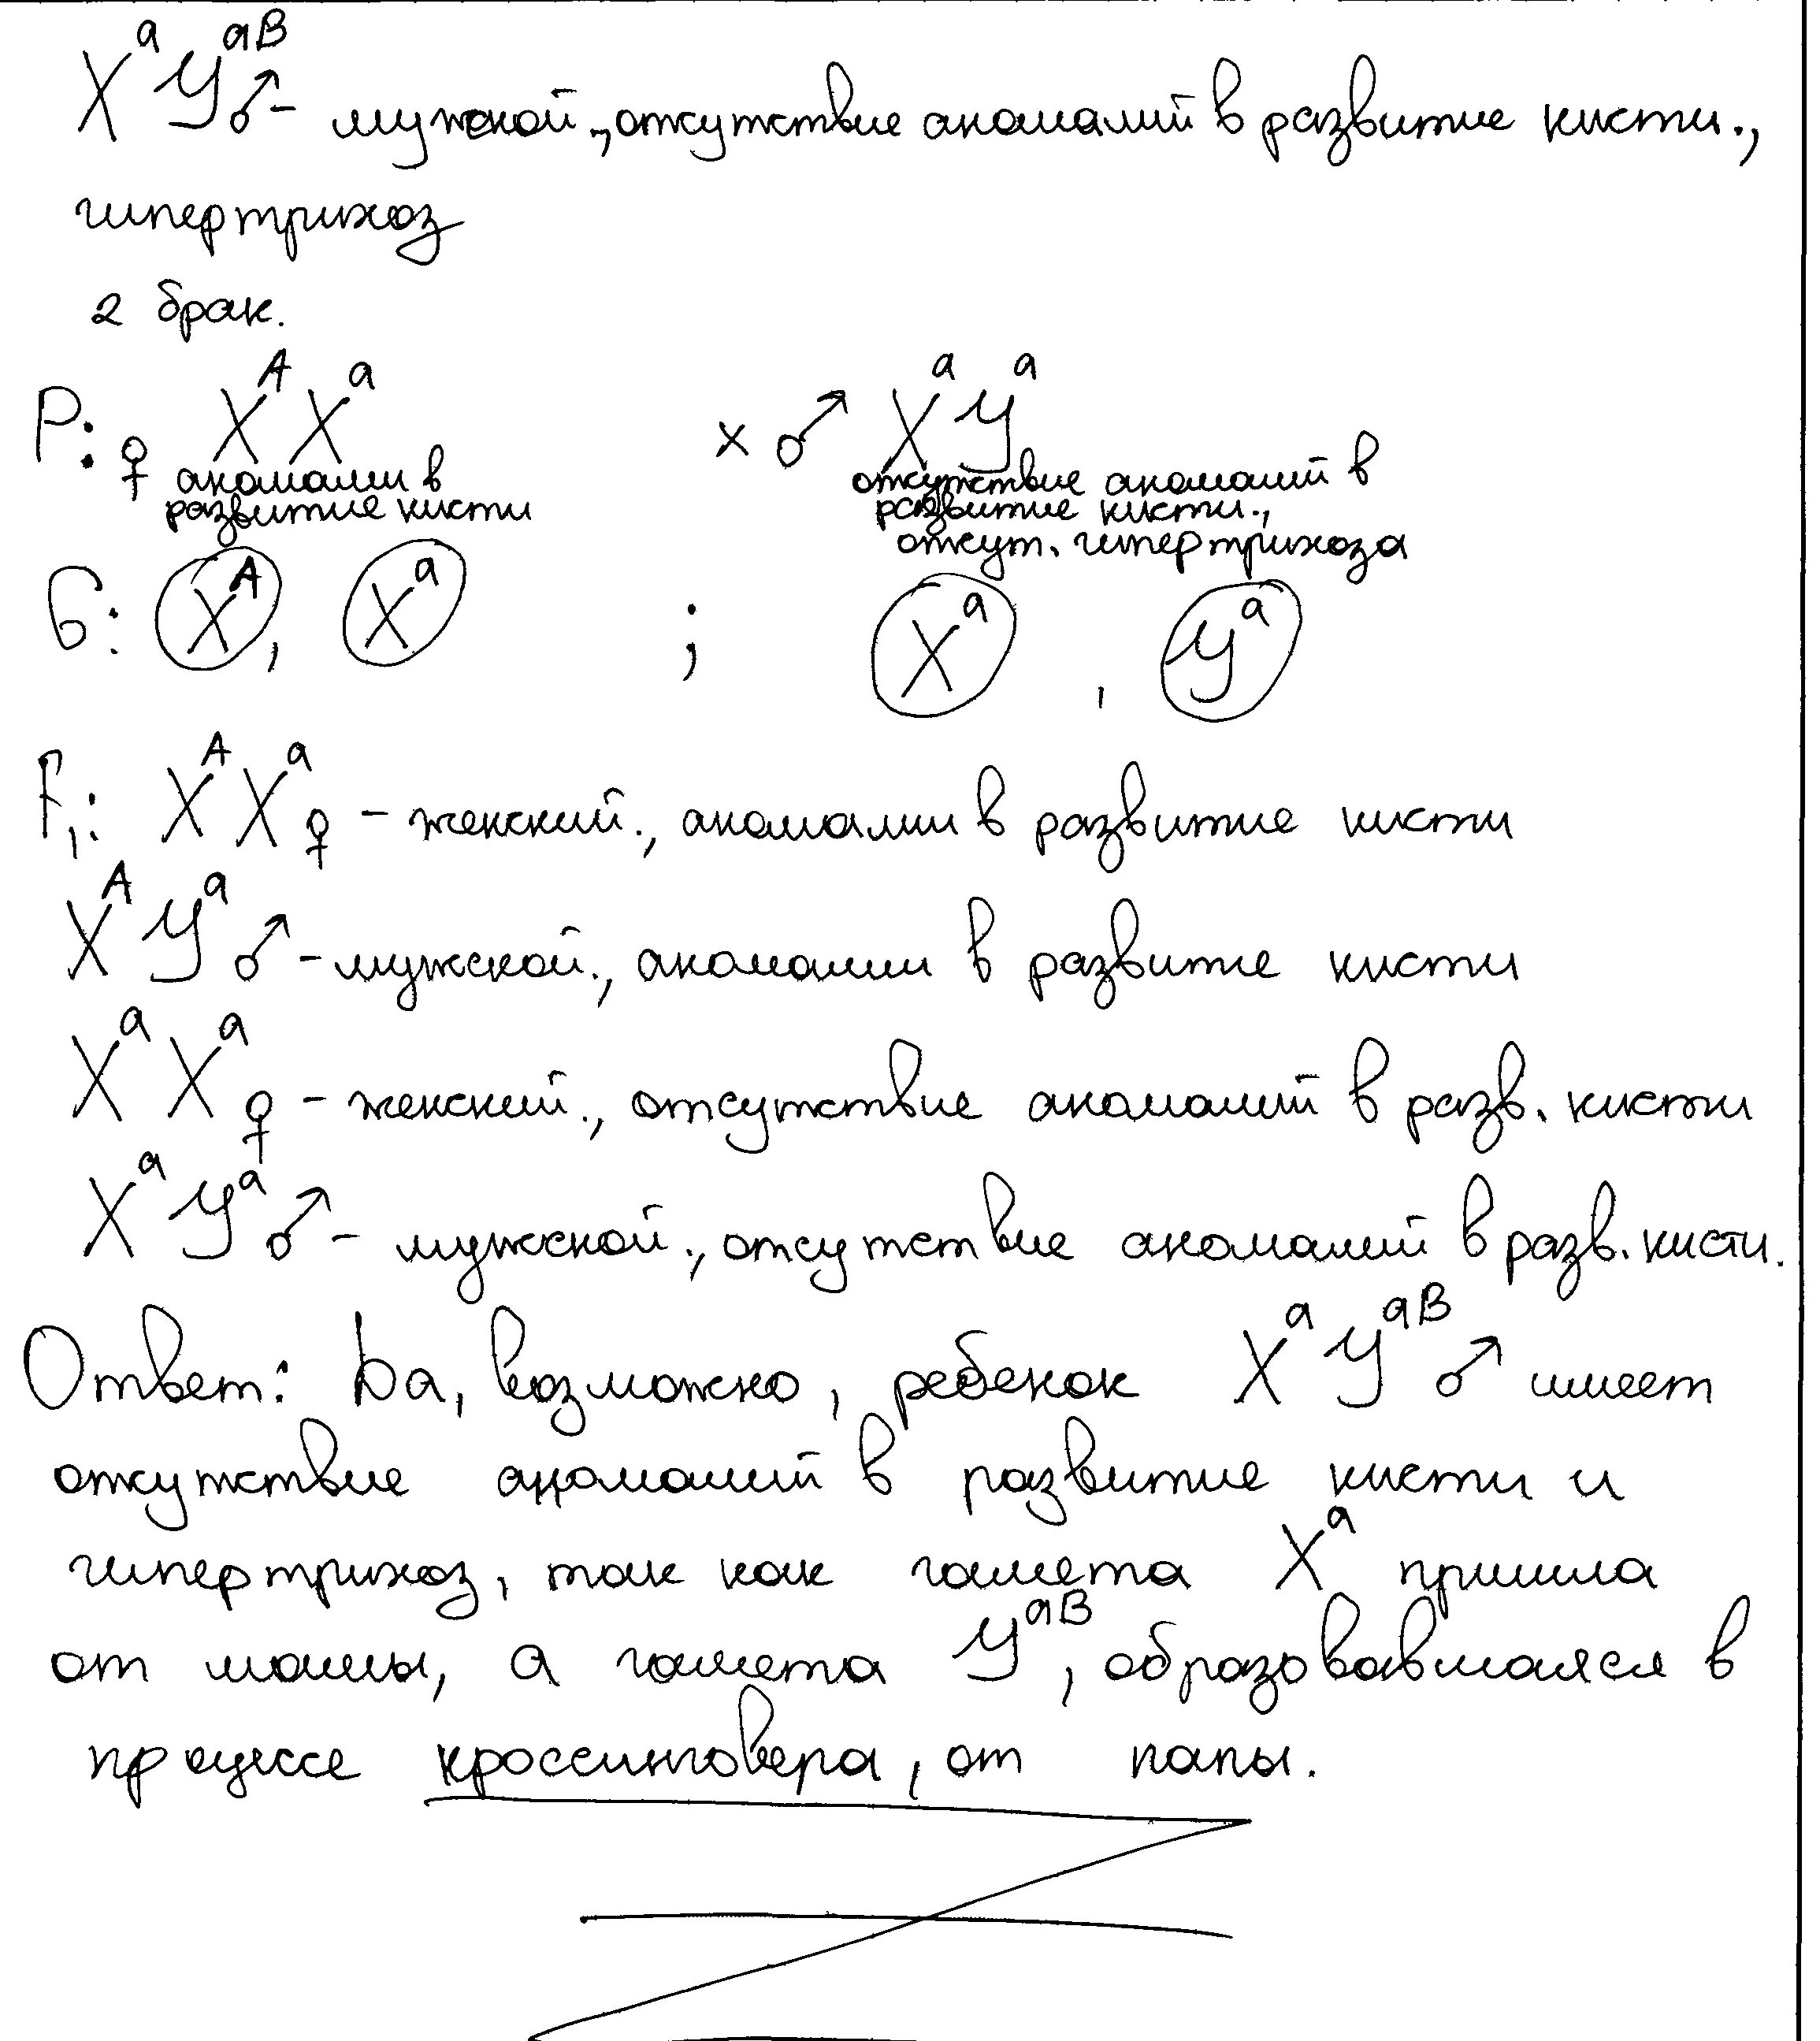 X^a У^aB ♂ – мужской., отсутствие аномалий в развитие кисти.,
гипертрихоз
2 брак.
P: ♀ X^A X^a × ♂ X^a У^a
аномалии в развитие кисти
отсутствие аномалий в развитие кисти., отсут. гипертрихоза
G: X^A, X^a ; X^a, У^a
F₁: X^A X^a ♀ – женский., аномалии в развитие кисти
X^A У^a ♂ – мужской., аномалии в развитие кисти
X^a X^a ♀ – женский., отсутствие аномалий в разв. кисти
X^a У^a ♂ – мужской., отсутствие аномалий в разв. кисти.
Ответ: Да, возможно, ребенок X^a У^aB ♂ имеет
отсутствие аномалий в развитие кисти и
гипертрихоз, так как гамета X^a пришла
от мамы, а гамета У^aB, образовавшаяся в
процессе кроссинговера, от папы.